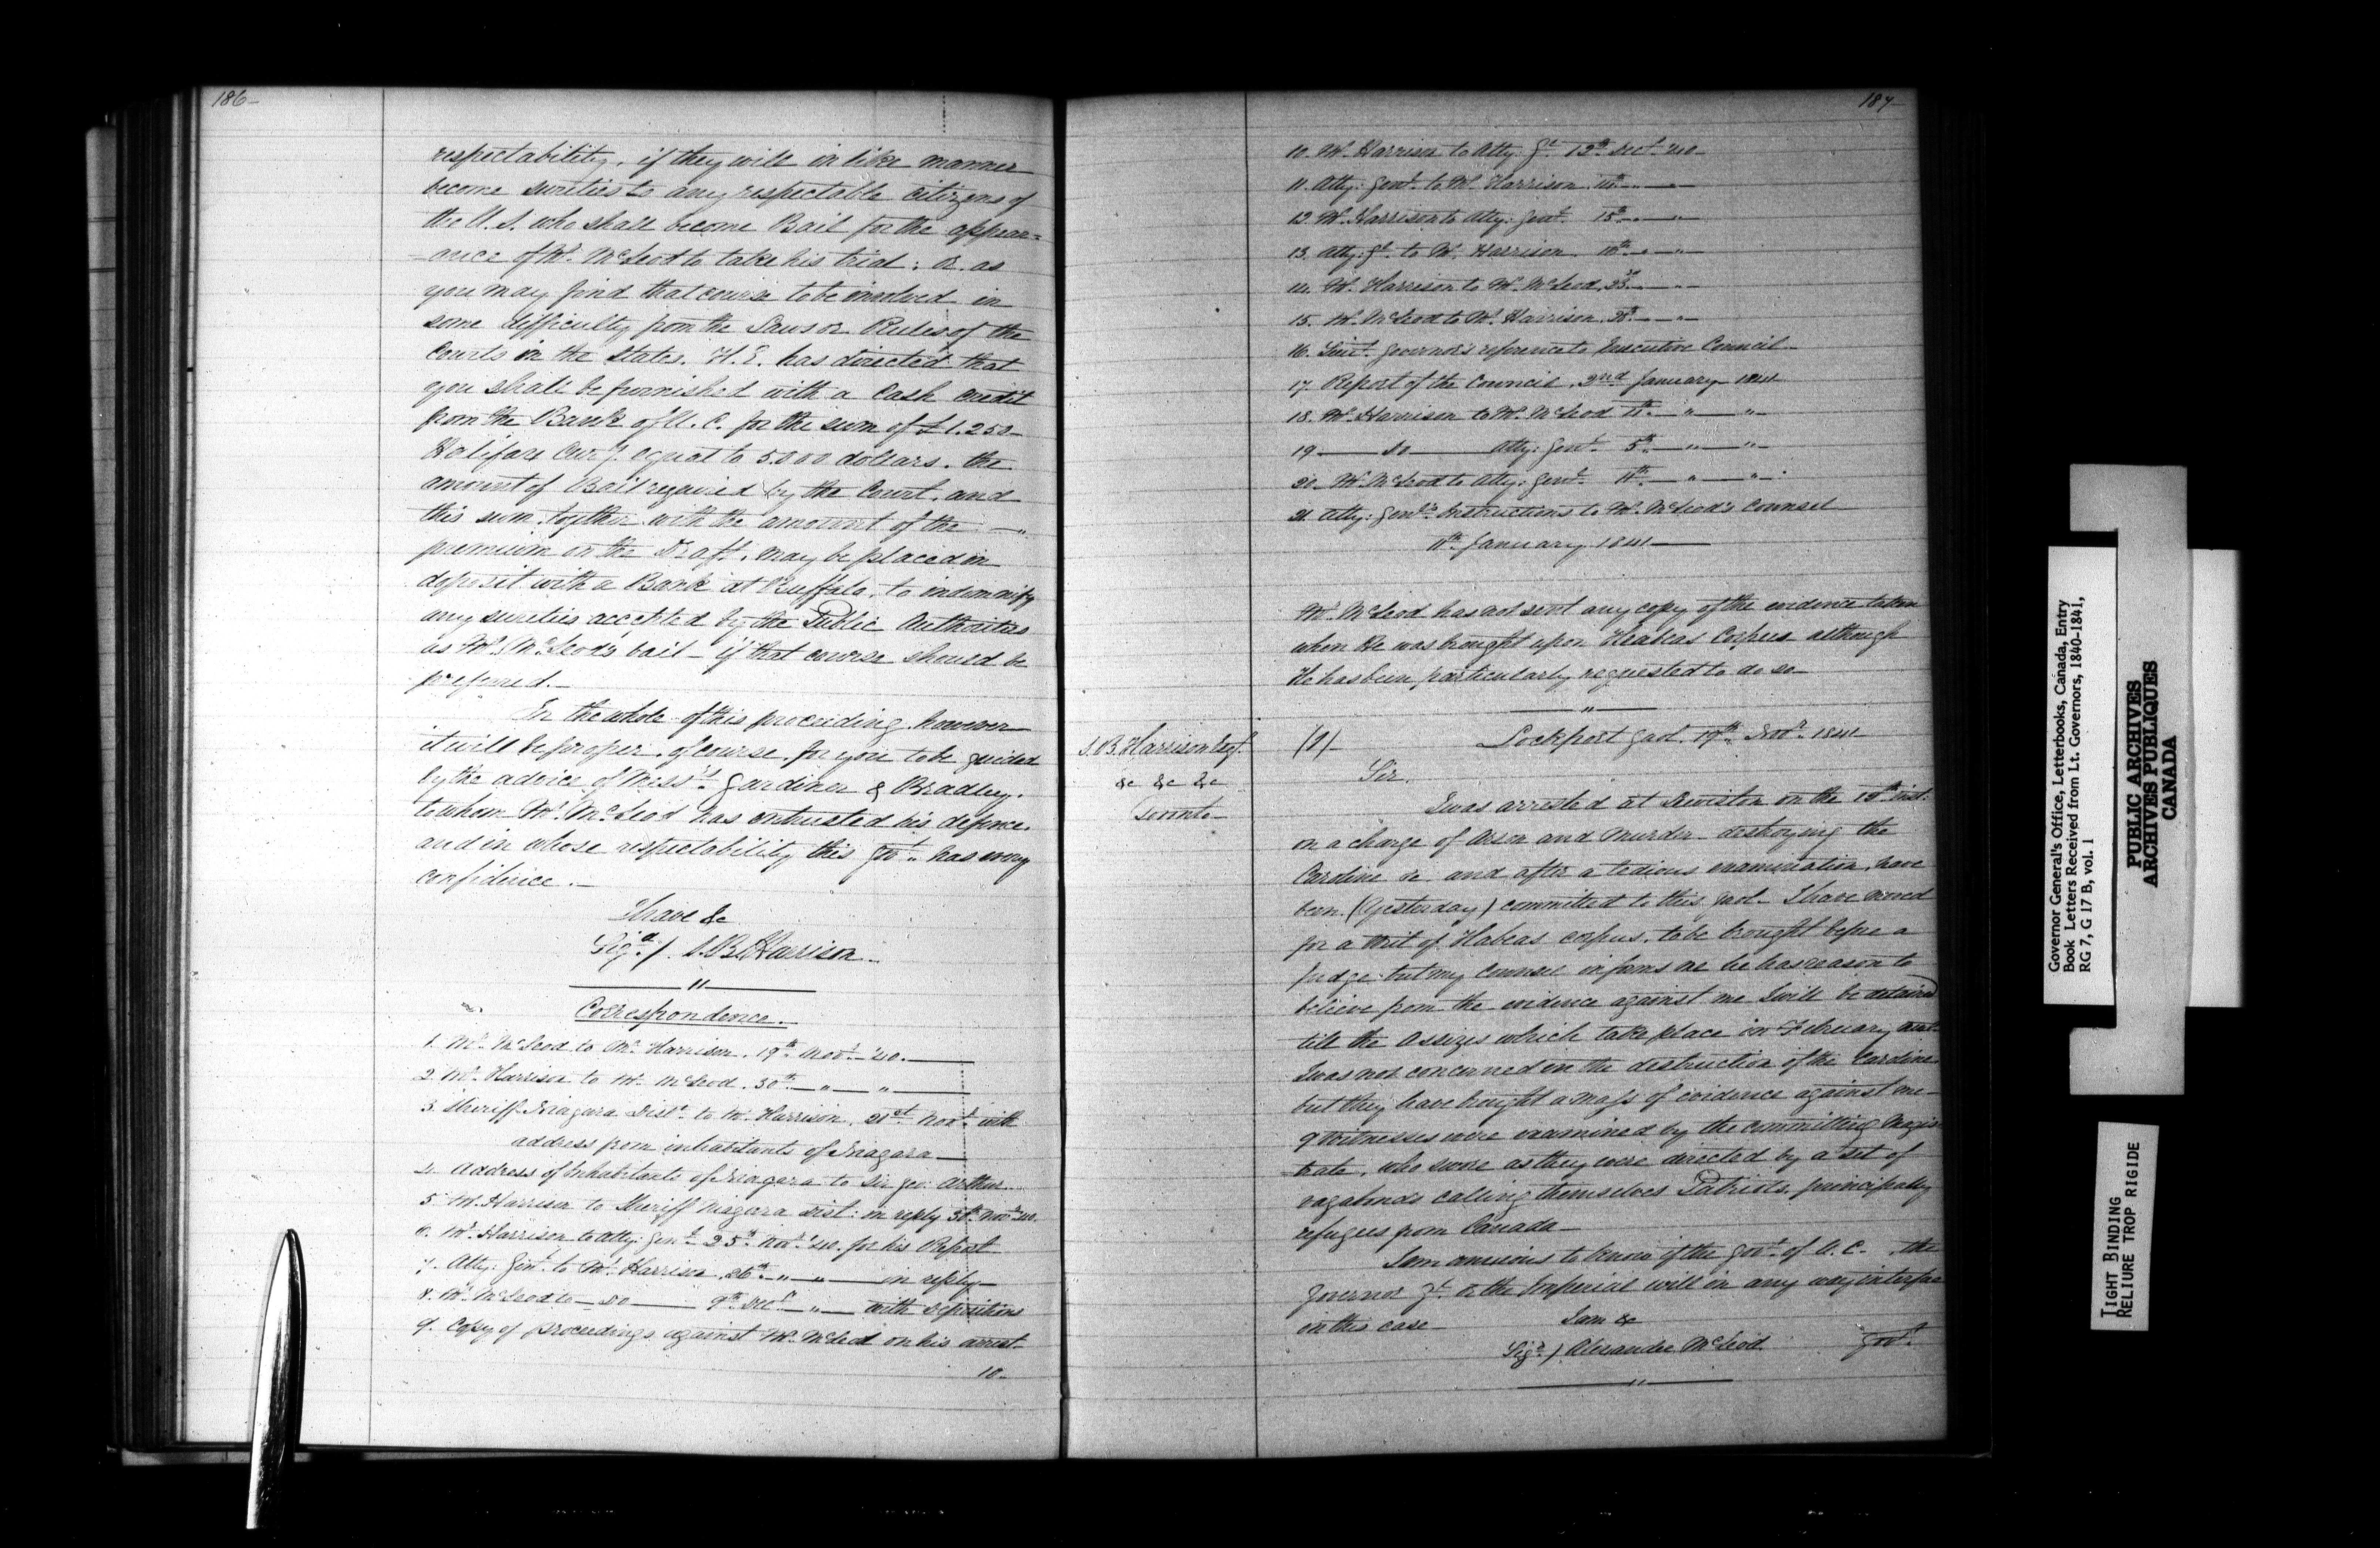 186-
respectability, if they will in like manner
become sureties to any respectable citizens of
the U.S. who shall become Bail for the appear=
=ance of Mr. McLeod to take his trial: or as
you may find that course to be involved in
some difficulty from the Laws or Rules of the
Courts in the States. H.E. has directed that
you shall be furnished with a Cash credit
from the Bank of U.C. for the sum of £1.250-
Halifax Curcy. equal to 5000 dollars. the
amount of Bail required by the Court, and
this sum, together with the amount of the — "
premium on the Draft, may be placed in
deposit with a Bank at Buffalo, to indemnify
any sureties accepted by the Public Authorities
as Mr. McLeod's bail - if that course should be
preferred.-
In the whole of this proceeding however
it will be proper, of course, for you to be guided
by the advice of Messrs. Gardiner & Bradley.
to whom Mr. McLeod has entrusted his defence.
and in whose respectability this Govt. has every
confidence.-
I have &c
Sigd./. S.B. Harrison
"
Correspondence.
1. Mr. McLeod to Mr. Harrison. 19th Novr. '40.
2. Mr. Harrison to Mr. McLeod. 30th — " — "
3. Sheriff Niagara Distt. to Mr. Harrison. 21st Novr. with
address from inhabitants of Niagara
4. Address of Inhabitants of Niagara to Sir Geo: Arthur.
5. Mr. Harrison to Sheriff Niagara Dist: in reply 30th Novr. '40.
6. Mr. Harrison to Atty: Genl. 25th Novr. '40. for his Report
7. Atty: Genl. to Mr. Harrison. 26th — " — " — in reply
8. Mr. McLeod to — Do — 9th Decr. — " — with Depositions
9. Copy of proceedings against Mr. McLeod on his arrest-
10-
187-
10. Mr. Harrison to Atty: Gl. 12th Decr. '40-
11. Atty: Genl. to Mr. Harrison. 14th — " — "
12. Mr. Harrison to Atty: Genl. 15th — " — "
13. Atty: Gl. to Mr. Harrison. — " — "
14. Mr. Harrison to Mr. McLeod. 23d — " — "
15. Mr. McLeod to Mr. Harrison. 30th — " — "
16. Lieut. Governor's reference to Executive Council-
17. Report of the Council. 2nd January 1841
18. Mr. Harrison to Mr. McLeod — " — "
19 — Do — Atty: Genl. 5th — " — "
20. Mr. McLeod to Atty: Genl. 11th — " — "
21. Atty: Genl's. Instructions to Mr. McLeod's Counsel
11th January 1841
Mr. McLeod has not sent any copy of the evidence taken
when He was brought upon Heabeas Corpus although
He has been particularly requested to do so-
"
S.B. Harrison Esqr.
&c &c &c
Toronto-
(1)-
Lockport Gaol. 19th Novr. 1841
Sir.
I was arrested at Lewiston on the inst.
on a charge of Arson and Murder destroying the
Caroline &c and after a tedious examination, have
been (Yesterday) committed to this Gaol- I have moved
for a Writ of Habeas corpus, to be brought before a
Judge: but my counsel informs me he has reason to
believe from the evidence against me I will be detained
till the Assizes which take place in February next.
I was not concerned in the destruction of the Caroline
but they have brought a mass of evidence against me-
9 Witnesses were examined by the committing Magis-
=trate, who swore as they were directed by a set of
vagabonds calling themselves Patriots, principally
refugees from Canada-
I am anxious to know if the Govt. of U.C. the
Governor Gl. or the Imperial will in any way interfere
in this case
Govt.
I am &c
Sigd./ Alexander McLeod
"
Governor General's Office, Letterbooks, Canada, Entry
Book Letters Received from Lt. Governors, 1840-1841,
RG 7, G 17 B, vol. 1
PUBLIC ARCHIVES
ARCHIVES PUBLIQUES
CANADA
TIGHT BINDING
RELIURE TROP RIGIDE